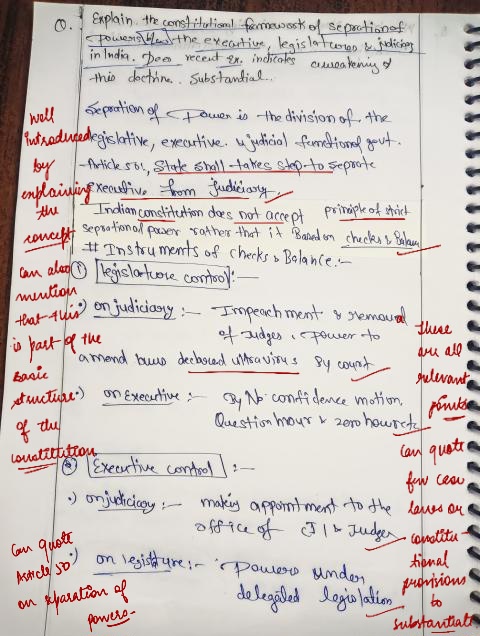 Q. Explain the constitutional framework of sepration of
powers b/w the executive, legislatures & judiciary
in India. Does recent Ex. indicates aweakening of
this doctrine. Substantial.
Sepration of Power is the division of the
legislative, executive & judicial function of govt.
Article 50!, State shall takes step to seprate
executive from judiciary.
Indian constitution does not accept principle of strict
seprational power rather that it Based on checks & Balance
# Instruments of checks & Balance :-
① legislature control :-
•) on judiciary :- Impeachment & removal
of Judges, Power to
amend laws declared ultravirus By court
•) on Executive :- By No-confidence motion,
Question hour & zero hour etc
② Executive control :-
•) on judiciary :- making appointment to the
office of CJI & Judges
•) on legislature :- Powers under
delegated legislation
Well
introduced
by
explaining
the
concept
can also
mention
that this
is part of the
basic
structure
of the
constitution
Can quote
Article 50
on separation of
powers-
these
are all
relevant
points
can quote
few case
laws or
constitu-
tional
provisions
to
substantiate